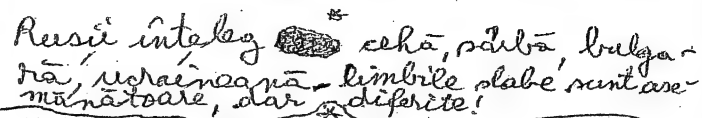 Rușii înțeleg cehă, sârbă, bulga-
ră, ucraineană - limbile slabe sunt ase-
mănătoare, dar diferite!